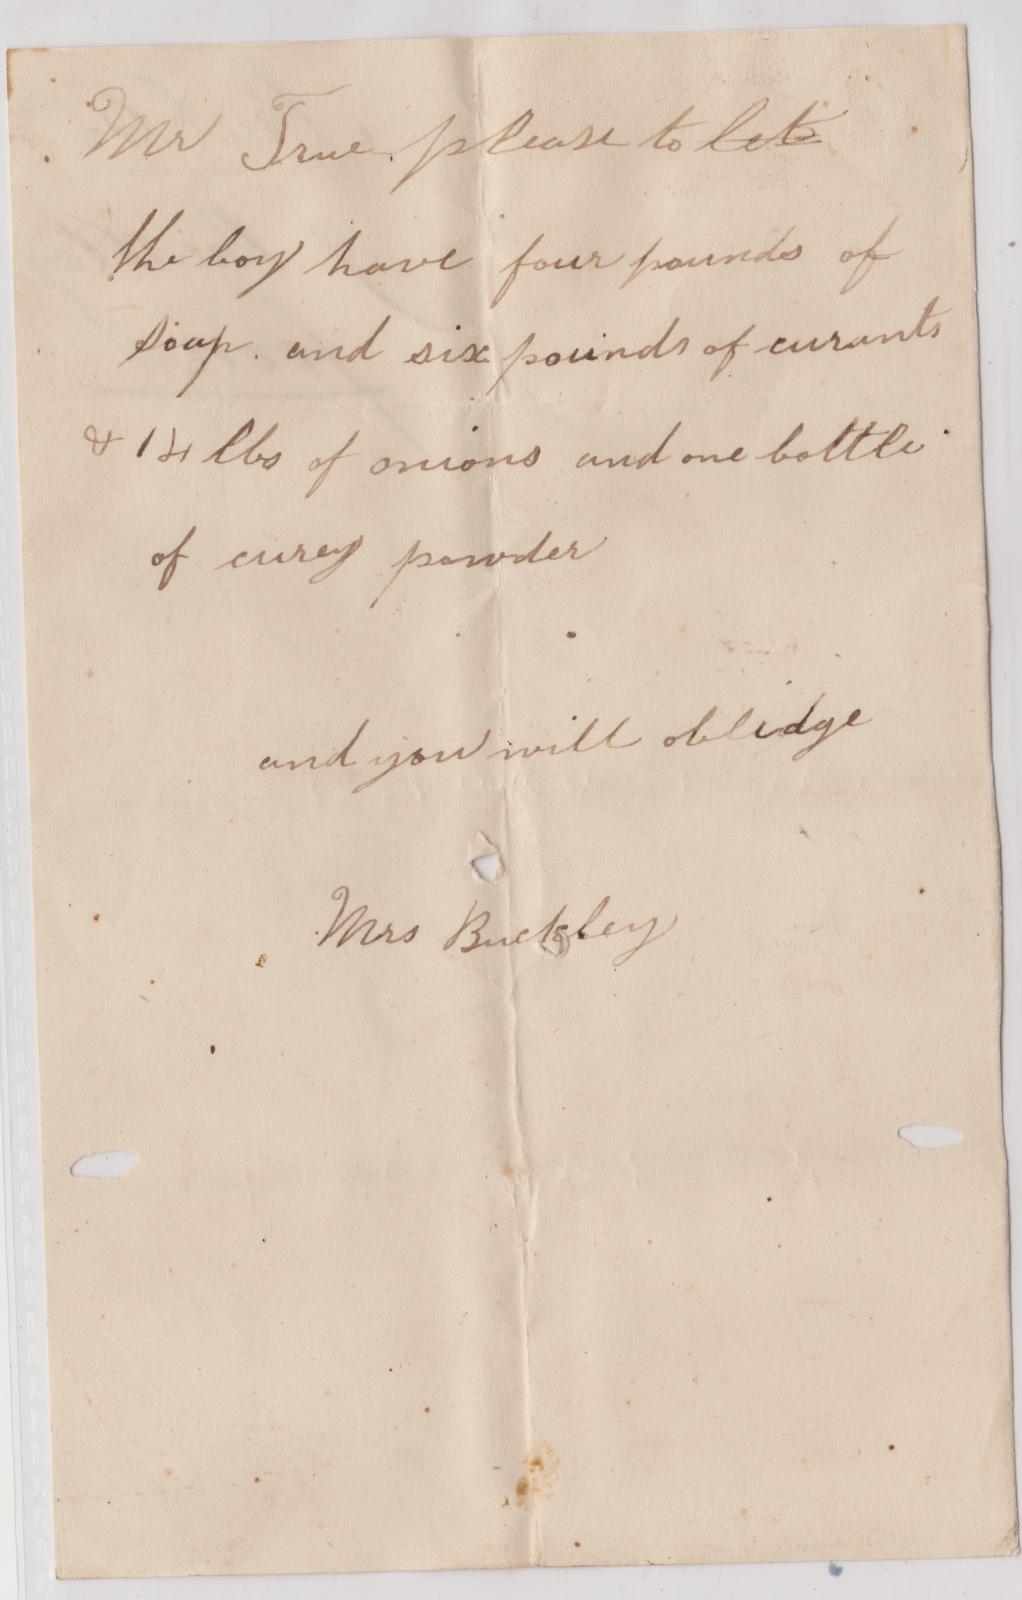 Mr True please to let
the boy have four pounds of
soap. and six pounds of curants
& 14 lbs of onions and one bottle
of curey powder
and you will oblidge
Mrs Buckley